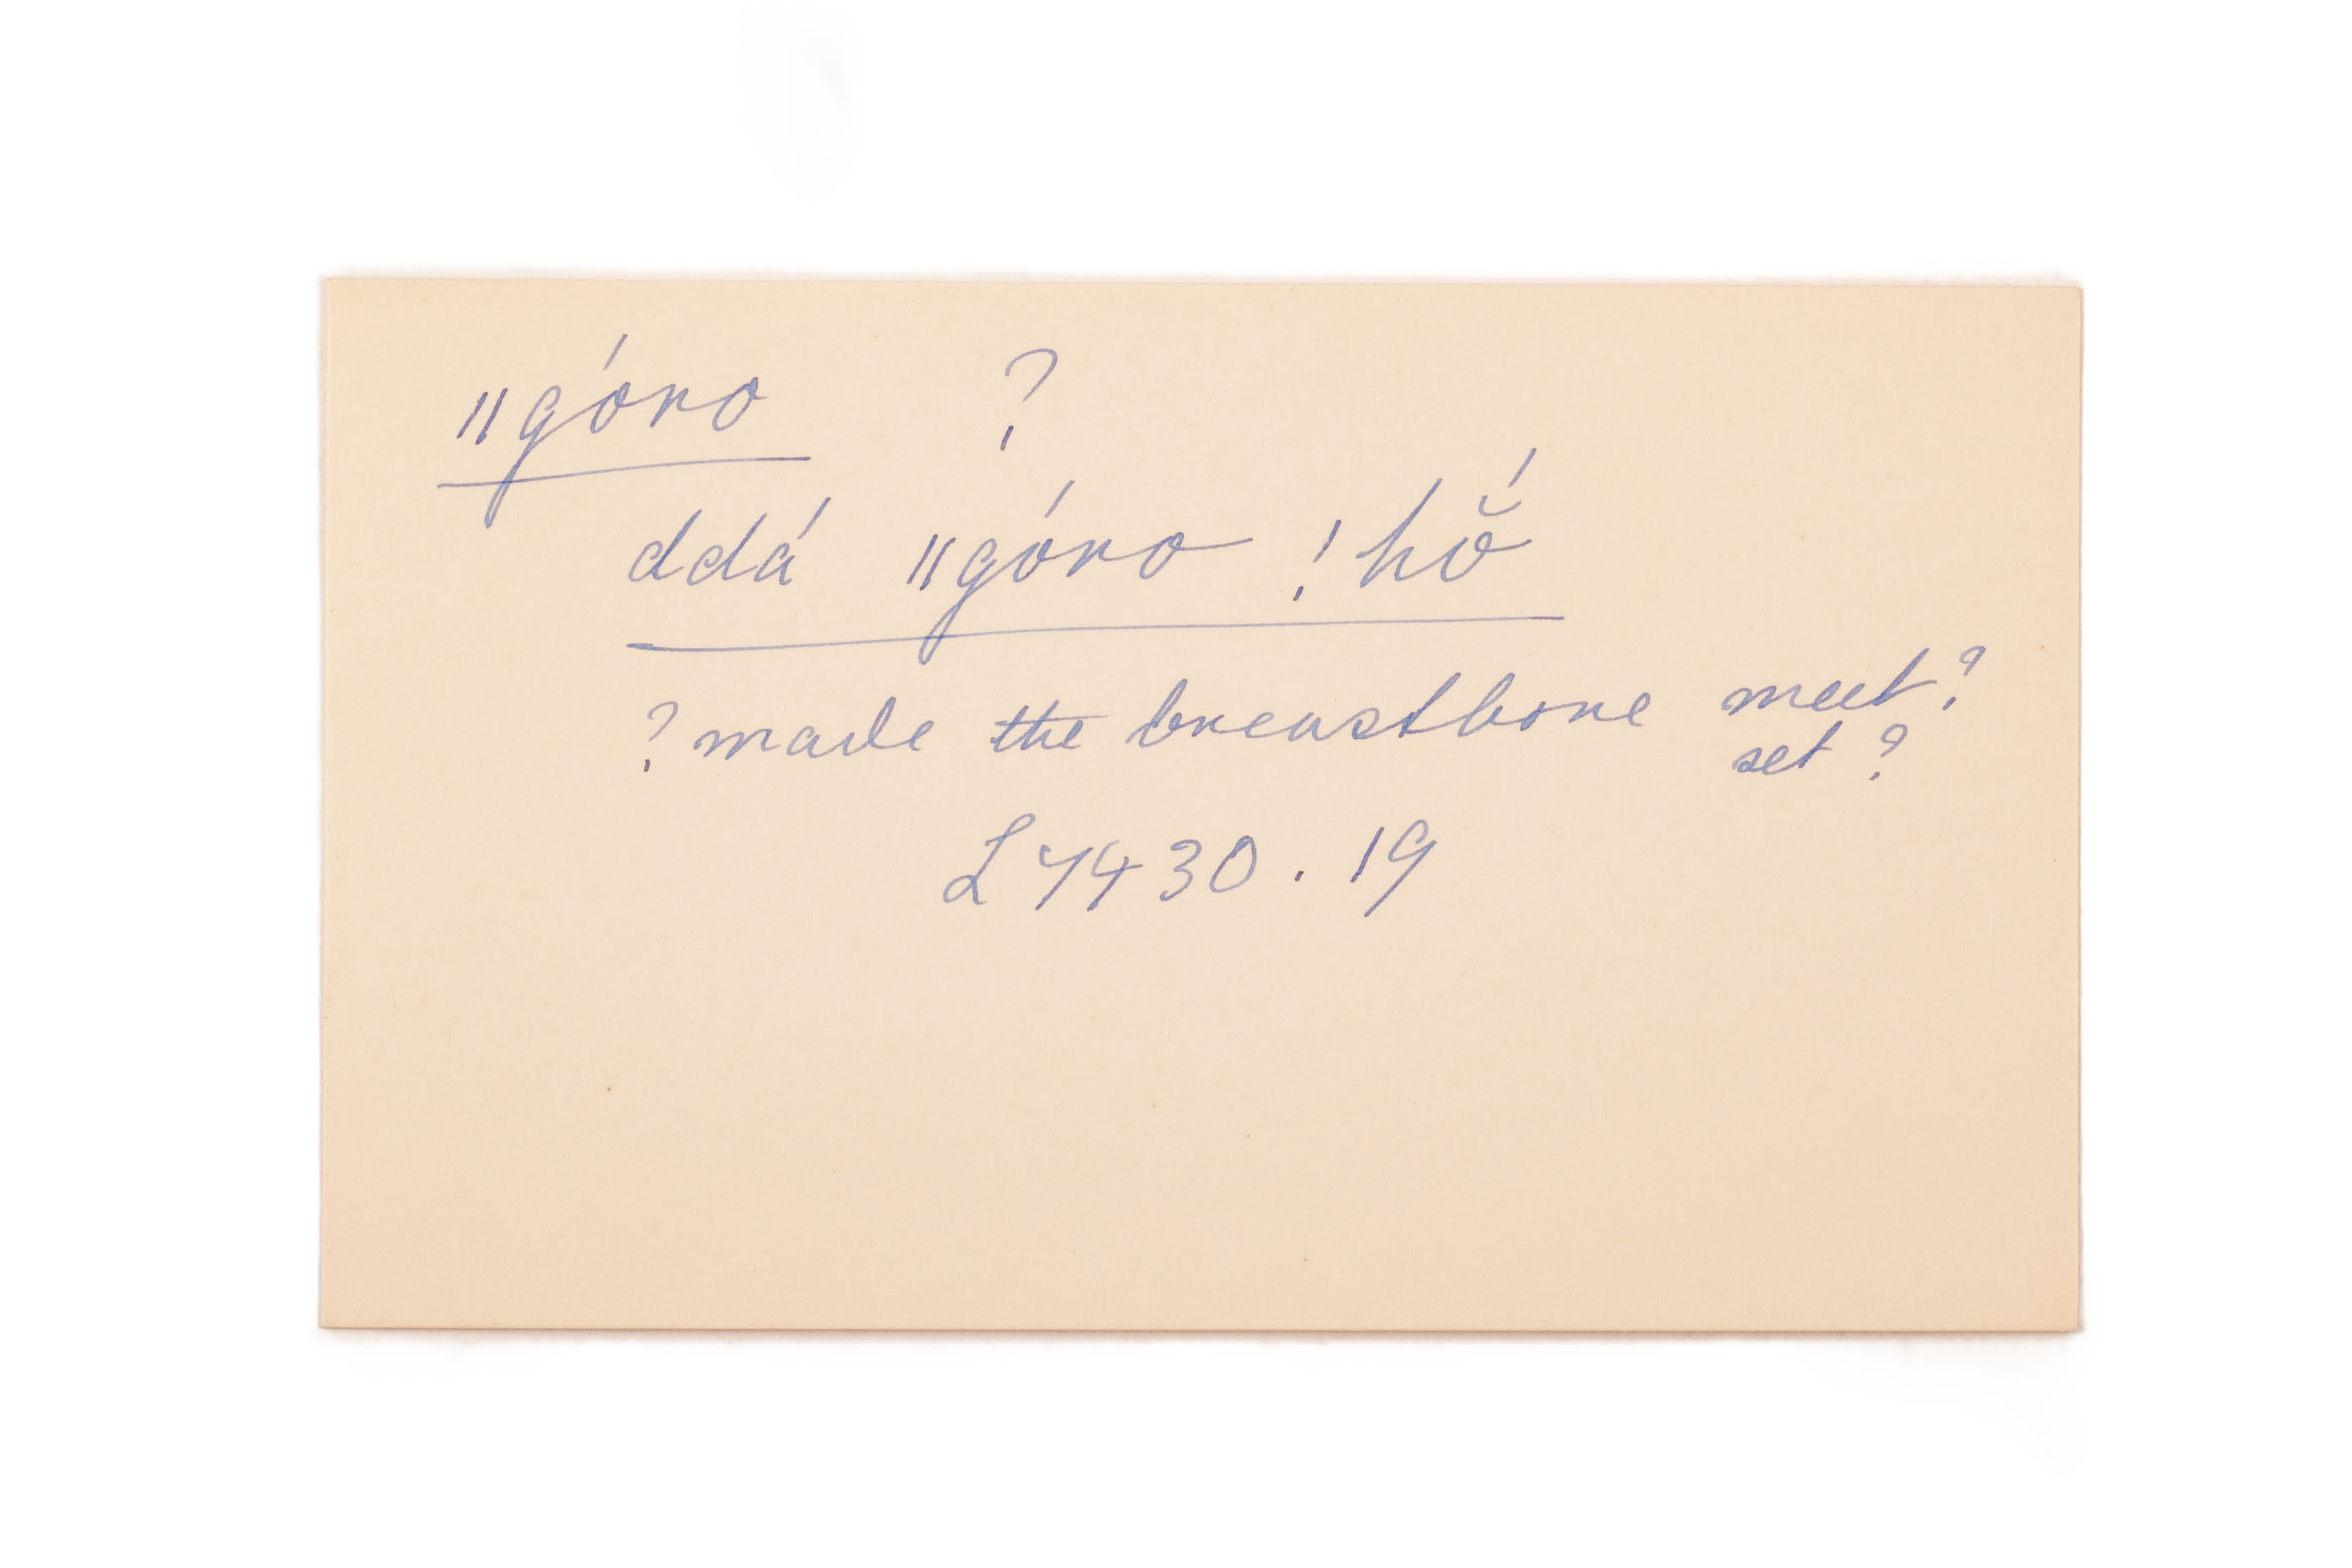 ǁgóro ?
ddá ǁgóro !hŏ́
? made the breastbone meet?
set ?
L 7430 . 19